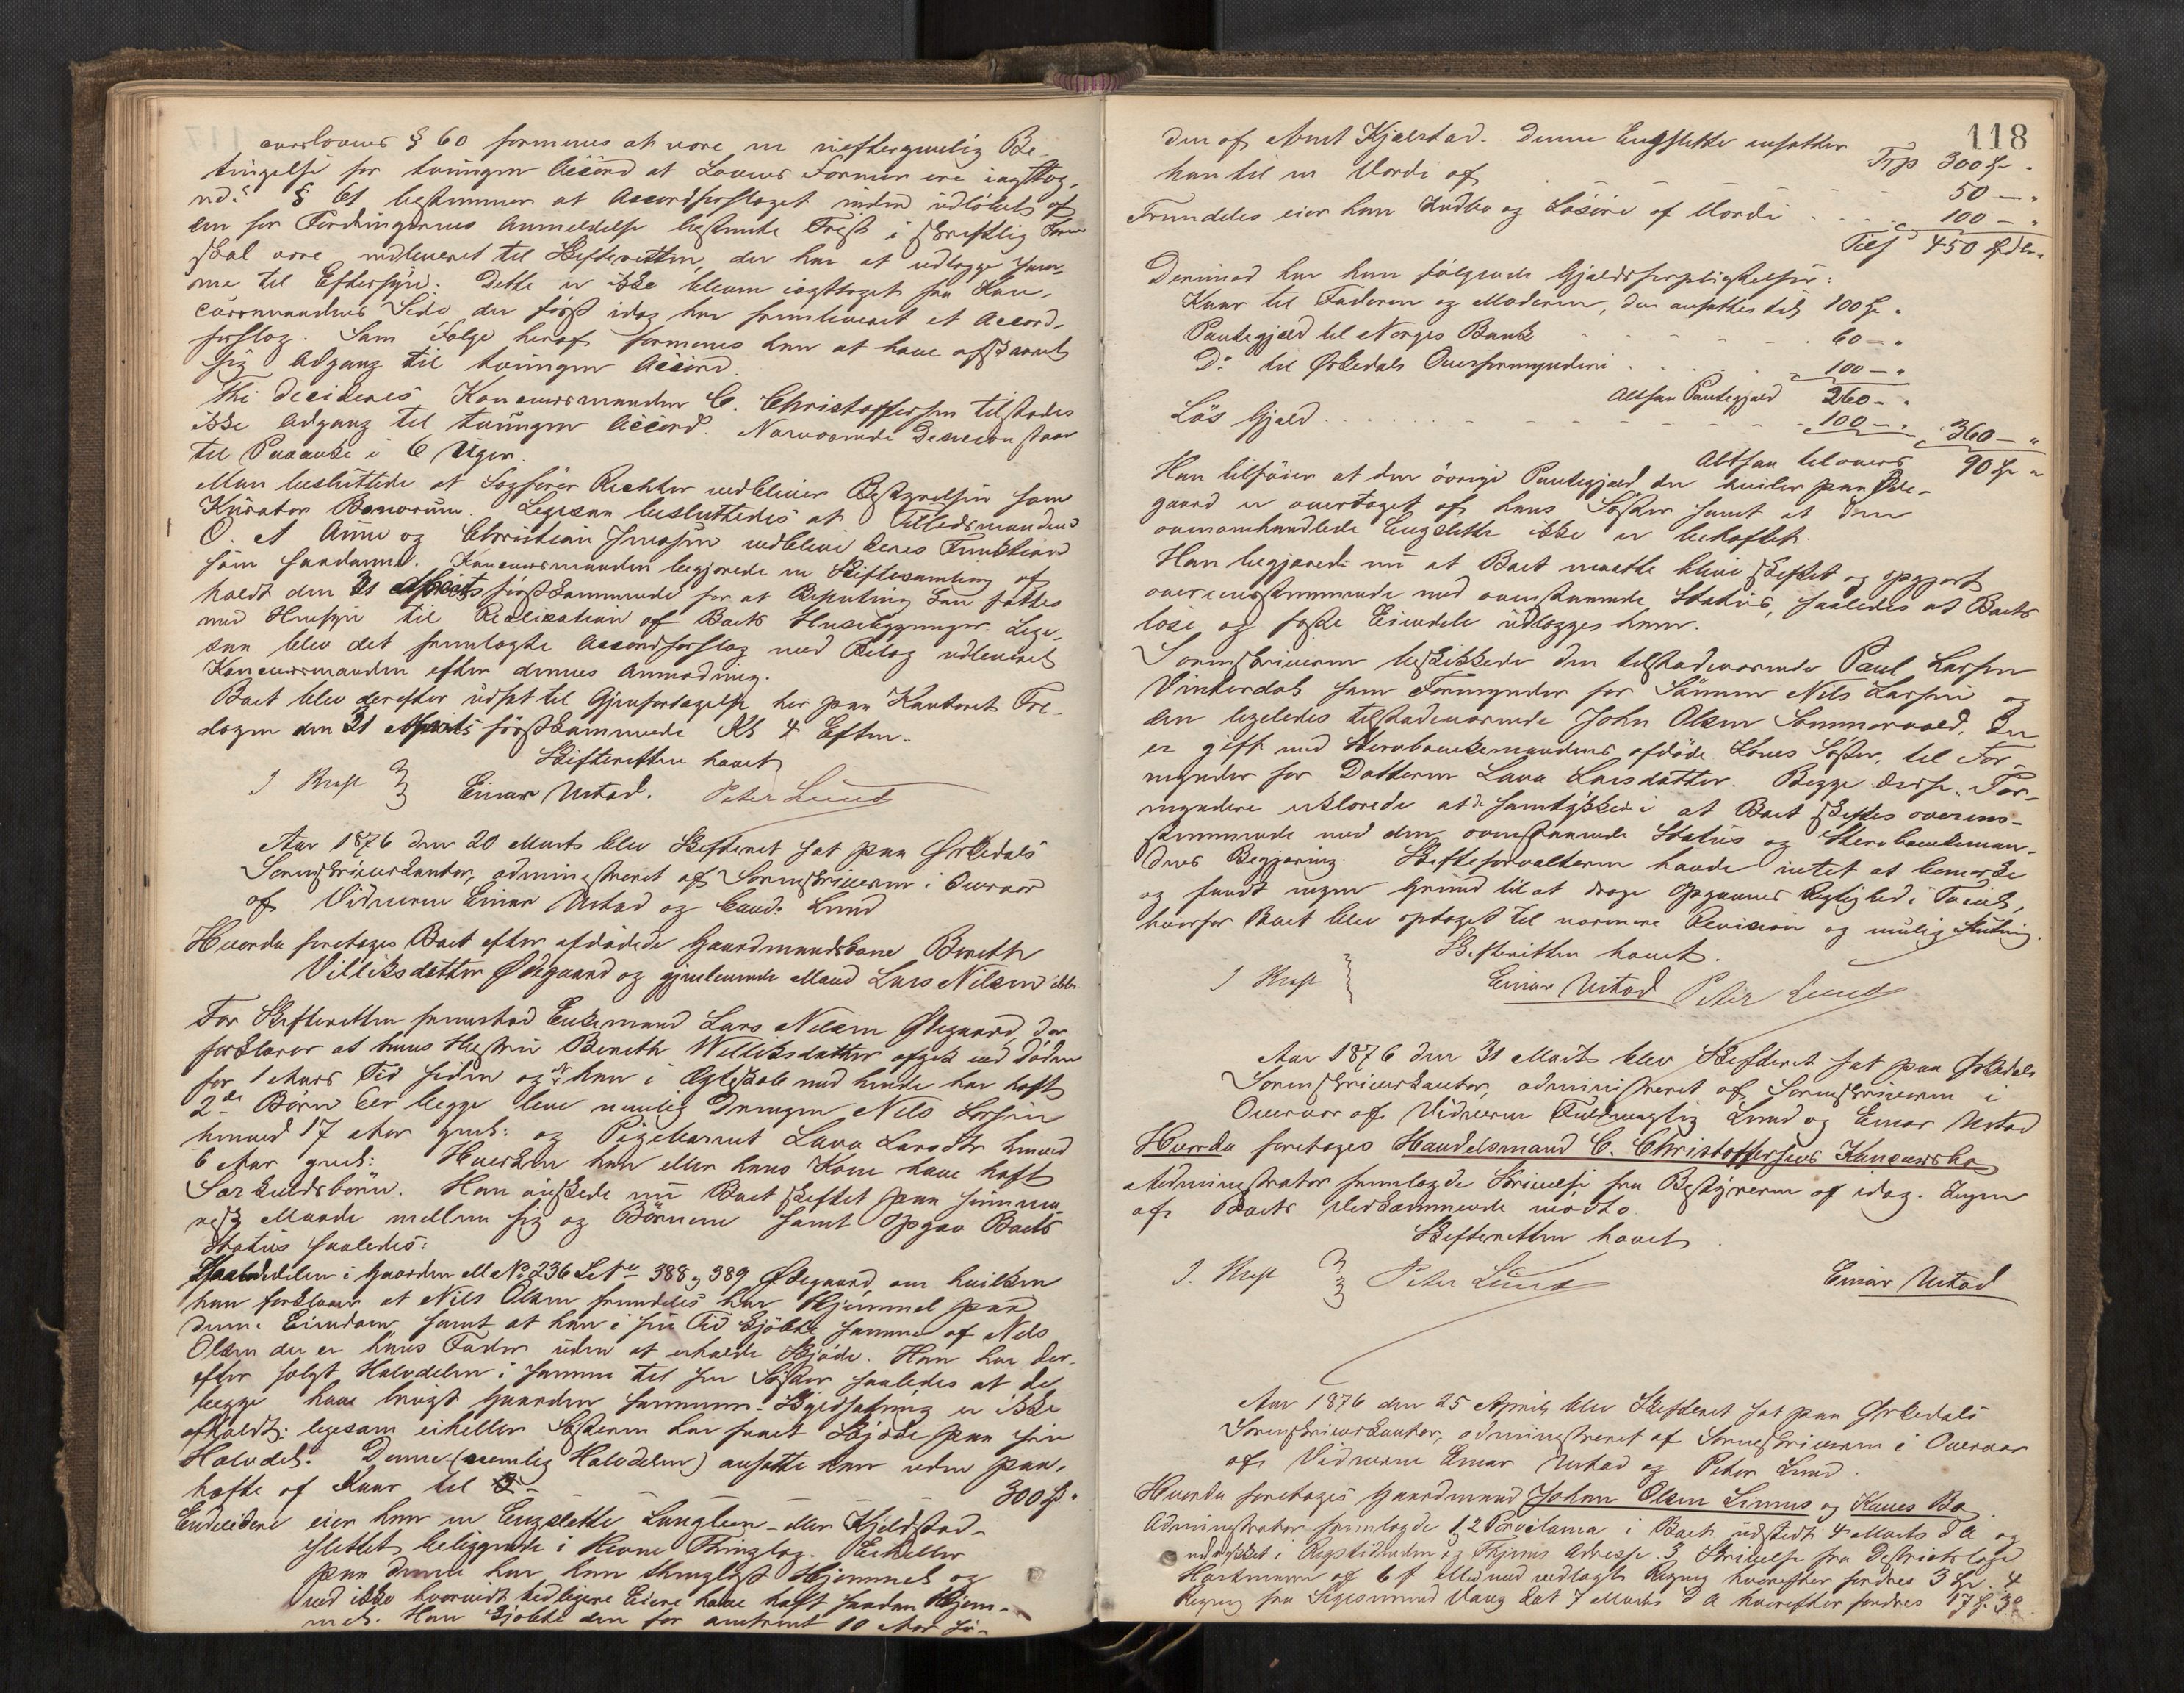 curslovens § 60 formenes at være en ueftergivelig Be-
tingelse for tvungen Accord at Lovens Former ere iagttag-
ne. § 61 bestemmer at Accordforslaget inden Udløbet af
den for Fordringernes Anmeldelse bestemte Frist i skriftlig Form
skal være indleveret til Skifteretten, der har at udlægge sam-
me til Eftersyn. Dette er ikke bleven iagttaget fra Kon-
cursmandens Side, der først idag har fremleveret et Accord-
forslag. Som Følge heraf formenes han at have afskaaret
sig Adgang til tvungen Accord.
Thi decideres Koncursmanden C. Christophersen tilstedes
ikke Adgang til tvungen Accord. Nærværende Decision staar
til Paaanke i 6 Uger.
Man besluttede at Sagfører Richter vedbliver Bestyrelsen som
Kurator Bonorum. Ligesaa besluttedes at Tillidsmændene
O. A. Aune og Christian vedblive deres Funktion
som saadanne. Koncursmanden begjærede en Skiftesamling af-
holdt den 31 Marts førstkommende for at Beslutning kan fattes
med Hensyn til Realisation af Boets Husebygninger. Lige-
saa blev det fremlagte Accordforslag med Bilag udleveret
Koncursmanden efter dennes Anmodning.
Boet blev derefter udsat til Gjenforetagelse her paa Kontoret Fre-
dagen den 31 Marts førstkommende Kl 4 Efterm.
Skifteretten hævet
J Kraft Einar Ustad. Peter Lund
Aar 1876 den 20 Marts blev Skifteret sat paa Ørkedals
Sorenskriverkontor, administreret af Sorenskriveren i Overvær
af Vidnerne Einar Ustad og Cand: Lund
Hvorda foretages Boet efter afdøde Gaardmandskone Bereth
Villiksdatter Ødegaard og gjenlevende Mand Lars Nilsen ibd
For Skifteretten fremstod Enkemand Lars Nilsen Ødegaard, der
forklarer at hans Hustru Bereth Williksdatter afgik ved Døden
for 1 Aars Tid siden og at han i Ægteskab med hende har havt
2de Børn der begge leve nemlig Drengen Nils Larsen
henved 17 Aar gml: og Pigebarnet Lava Larsdtr henved
6 Aar gml: Hverken han eller hans Kone have havt
Særkuldsbørn. Han ønskede nu Boet skiftet paa
Maade mellem sig og Børnene samt opgav Boets
Status saaledes:
Halvdelen i Gaarden M No 236 L No 388 og 389 Ødegaard, om hvilken
han forklarer at Nils Olsen fremdeles har Hjemmel paa
denne Eiendom samt at han i sin Tid kjøbte samme af Nils
Olsen der er hans Fader uden at erholde Skjøde. Han har der-
efter solgt Halvdelen i samme til sin Søster saaledes at de
begge have brugt Gaarden sammen. Skyldsætning er ikke
afholdt: ligesom eiheller Søsteren har faaet Skjøde paa sin
Halvdel. Denne (nemlig Halvdelen) ansatte han uden paa-
hefte af Kaar til - - - 300 Sp "
Endvidere eier han en Engslette Langlien - eller Kjeldstad-
slettet, beliggende i Hevne Thinglag. Eiheller
paa denne har han thinglyst Hjemmel og
ved ikke hvorvidt tidligere Eiere have havt saadan Hjem-
mel. Han kjøbte den for omtrent 10 Aar si-
118
den af Arnt Kjælstad. Denne Engslette ansatter
Trp 300 Sp "
han til en Værdi af 50 - "
Fremdeles eier han Indbo og Løsøre af Værdi . . . . 100 - "
Tils 450 Spdlr "
Derimod har han følgende Gjældsforpligtelser:
Kaar til Faderen og Moderen, der ansattes til 100 Sp "
Pantegjæld til Norges Bank . . . . 60 - "
Do til Ørkedals Overformynderi . . . . 100 - "
Altsaa Pantegjæld 260 - "
Løs Gjæld . . . . 100 - " 360 - "
Altsaa tilovers 90 Sp "
Han tilføier at den øvrige Pantegjæld der hviler paa Øde-
gaard er overtaget af hans Søster samt at den
ovenomhandlede Engslette ikke er beheftet.
Han begjærede nu at Boet maatte blive skiftet og opgjort
overensstemmende med ovenstaaende Status, saaledes at Boets
løse og faste Eiendele udlægges ham.
Sorenskriveren beskikkede den tilstedeværende Paul Larsen
Vinterdal som Formynder for Sønnen Nils Larsen og
den ligeledes tilstedeværende John Olsen Sommervold, der
er gift med Stervboenkemandens afdøde Kones Søster, til For-
mynder for Datteren Lava Larsdatter. Begge disse For-
myndere erklærede at de samtykkede i at Boet skiftes overens-
stemmende med den ovenstaaende Status og Stervboenkeman-
dens Begjæring. Skifteforvalteren havde intet at bemærke
og fandt ingen Grund til at drage Opgavens Rigtighed i Tvivl,
hvorfor Boet blev optaget til nærmere Revision og mulig Slutning.
Skifteretten hævet.
J Kraft Einar Ustad Peter Lund
Aar 1876 den 31 Marts blev Skifteret sat paa Ørkedals
Sorenskriverkontor, administreret af Sorenskriveren i
Overvær af Vidnerne Fuldmægtig Lund og Einar Ustad
Hvorda foretages Handelsmand C. Christophersens Koncursbo
Administrator fremlagde Skrivelse fra Bestyreren af idag. Ingen
af Boets Vedkommende mødte.
Skifteretten hævet.
J. Kraft Peter Lund Einar Ustad
Aar 1876 den 25 April blev Skifteret sat paa Ørkedals
Sorenskriverkontor, administreret af Sorenskriveren i Overvær
af Vidnerne Einar Ustad og Peter Lund.
Hvorda foretages Gaardmand Johan Olsen Linnes og Kones Bo
Administrator fremlagde 1, 2 Proclama i Boet udstedt 4 Marts d A og
indrykket i Rigstidenden og Thjems Adresse. 3 Skrivelse fra Distriktslæge
Hartmann af 6 f Md med vedlagte Regning hvorefter fordres 3 Sp. 4
Regning fra Sigismund Vang dat 7 Marts d A hvorefter fordres 17 Sp. 3